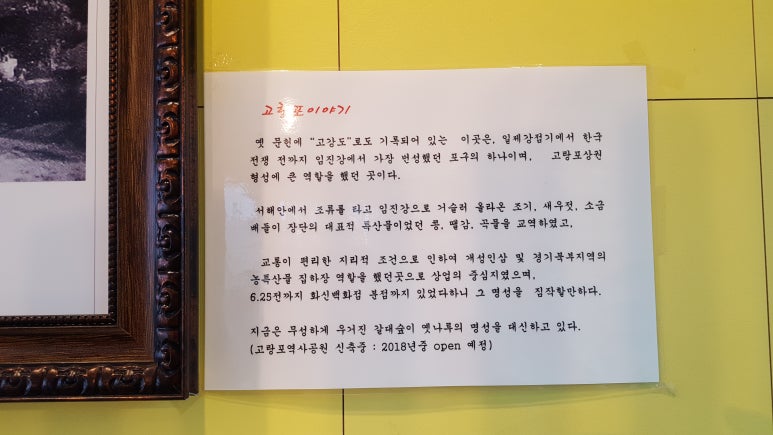 고랑포이야기
옛 문헌에 "고강도"로도 기록되어 있는 이곳은, 일제강점기에서 한국
전쟁 전까지 임진강에서 가장 번성했던 포구의 하나이며, 고랑포상권
형성에 큰 역할을 했던 곳이다.
서해안에서 조류를 타고 임진강으로 거슬러 올라온 조기, 새우젓, 소금
배들이 장단의 대표적 특산물이었던 콩, 땔감, 곡물을 교역하였고,
교통이 편리한 지리적 조건으로 인하여 개성인삼 및 경기북부지역의
농특산물 집하장 역할을 했던곳으로 상업의 중심지였으며,
6.25전까지 화신백화점 분점까지 있었다하니 그 명성을 짐작할만하다.
지금은 무성하게 우거진 갈대숲이 옛나루의 명성을 대신하고 있다.
(고랑포역사공원 신축중 : 2018년중 open 예정)